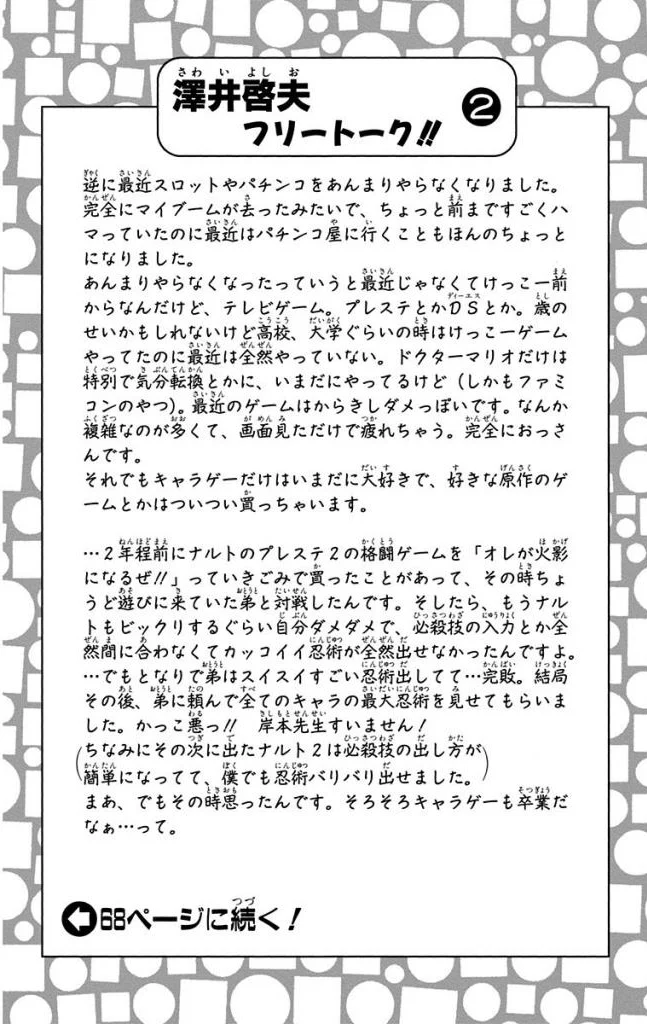 澤井啓夫
フリートーク!! ②
逆に最近スロットやパチンコをあんまりやらなくなりました。
完全にマイブームが去ったみたいで、ちょっと前まですごくハ
マっていたのに最近はパチンコ屋に行くこともほんのちょっと
になりました。
あんまりやらなくなったっていうと最近じゃなくてけっこー前
からなんだけど、テレビゲーム。プレステとかＤＳとか。歳の
せいかもしれないけど高校、大学ぐらいの時はけっこーゲーム
やってたのに最近は全然やっていない。ドクターマリオだけは
特別で気分転換とかに、いまだにやってるけど（しかもファミ
コンのやつ）。最近のゲームはからきしダメっぽいです。なんか
複雑なのが多くて、画面見ただけで疲れちゃう。完全におっさ
んです。
それでもキャラゲーだけはいまだに大好きで、好きな原作のゲ
ームとかはついつい買っちゃいます。
…２年程前にナルトのプレステ２の格闘ゲームを「オレが火影
になるぜ!!」っていきごみで買ったことがあって、その時ちょ
うど遊びに来ていた弟と対戦したんです。そしたら、もうナル
トもビックリするぐらい自分ダメダメで、必殺技の入力とか全
然間に合わなくてカッコイイ忍術が全然出せなかったんですよ。
…でもとなりで弟はスイスイすごい忍術出してて…完敗。結局
その後、弟に頼んで全てのキャラの最大忍術を見せてもらいま
した。かっこ悪っ!!　岸本先生すいません！
（ちなみにその次に出たナルト２は必殺技の出し方が
簡単になってて、僕でも忍術バリバリ出せました。）
まあ、でもその時思ったんです。そろそろキャラゲーも卒業だ
なぁ…って。
68ページに続く！